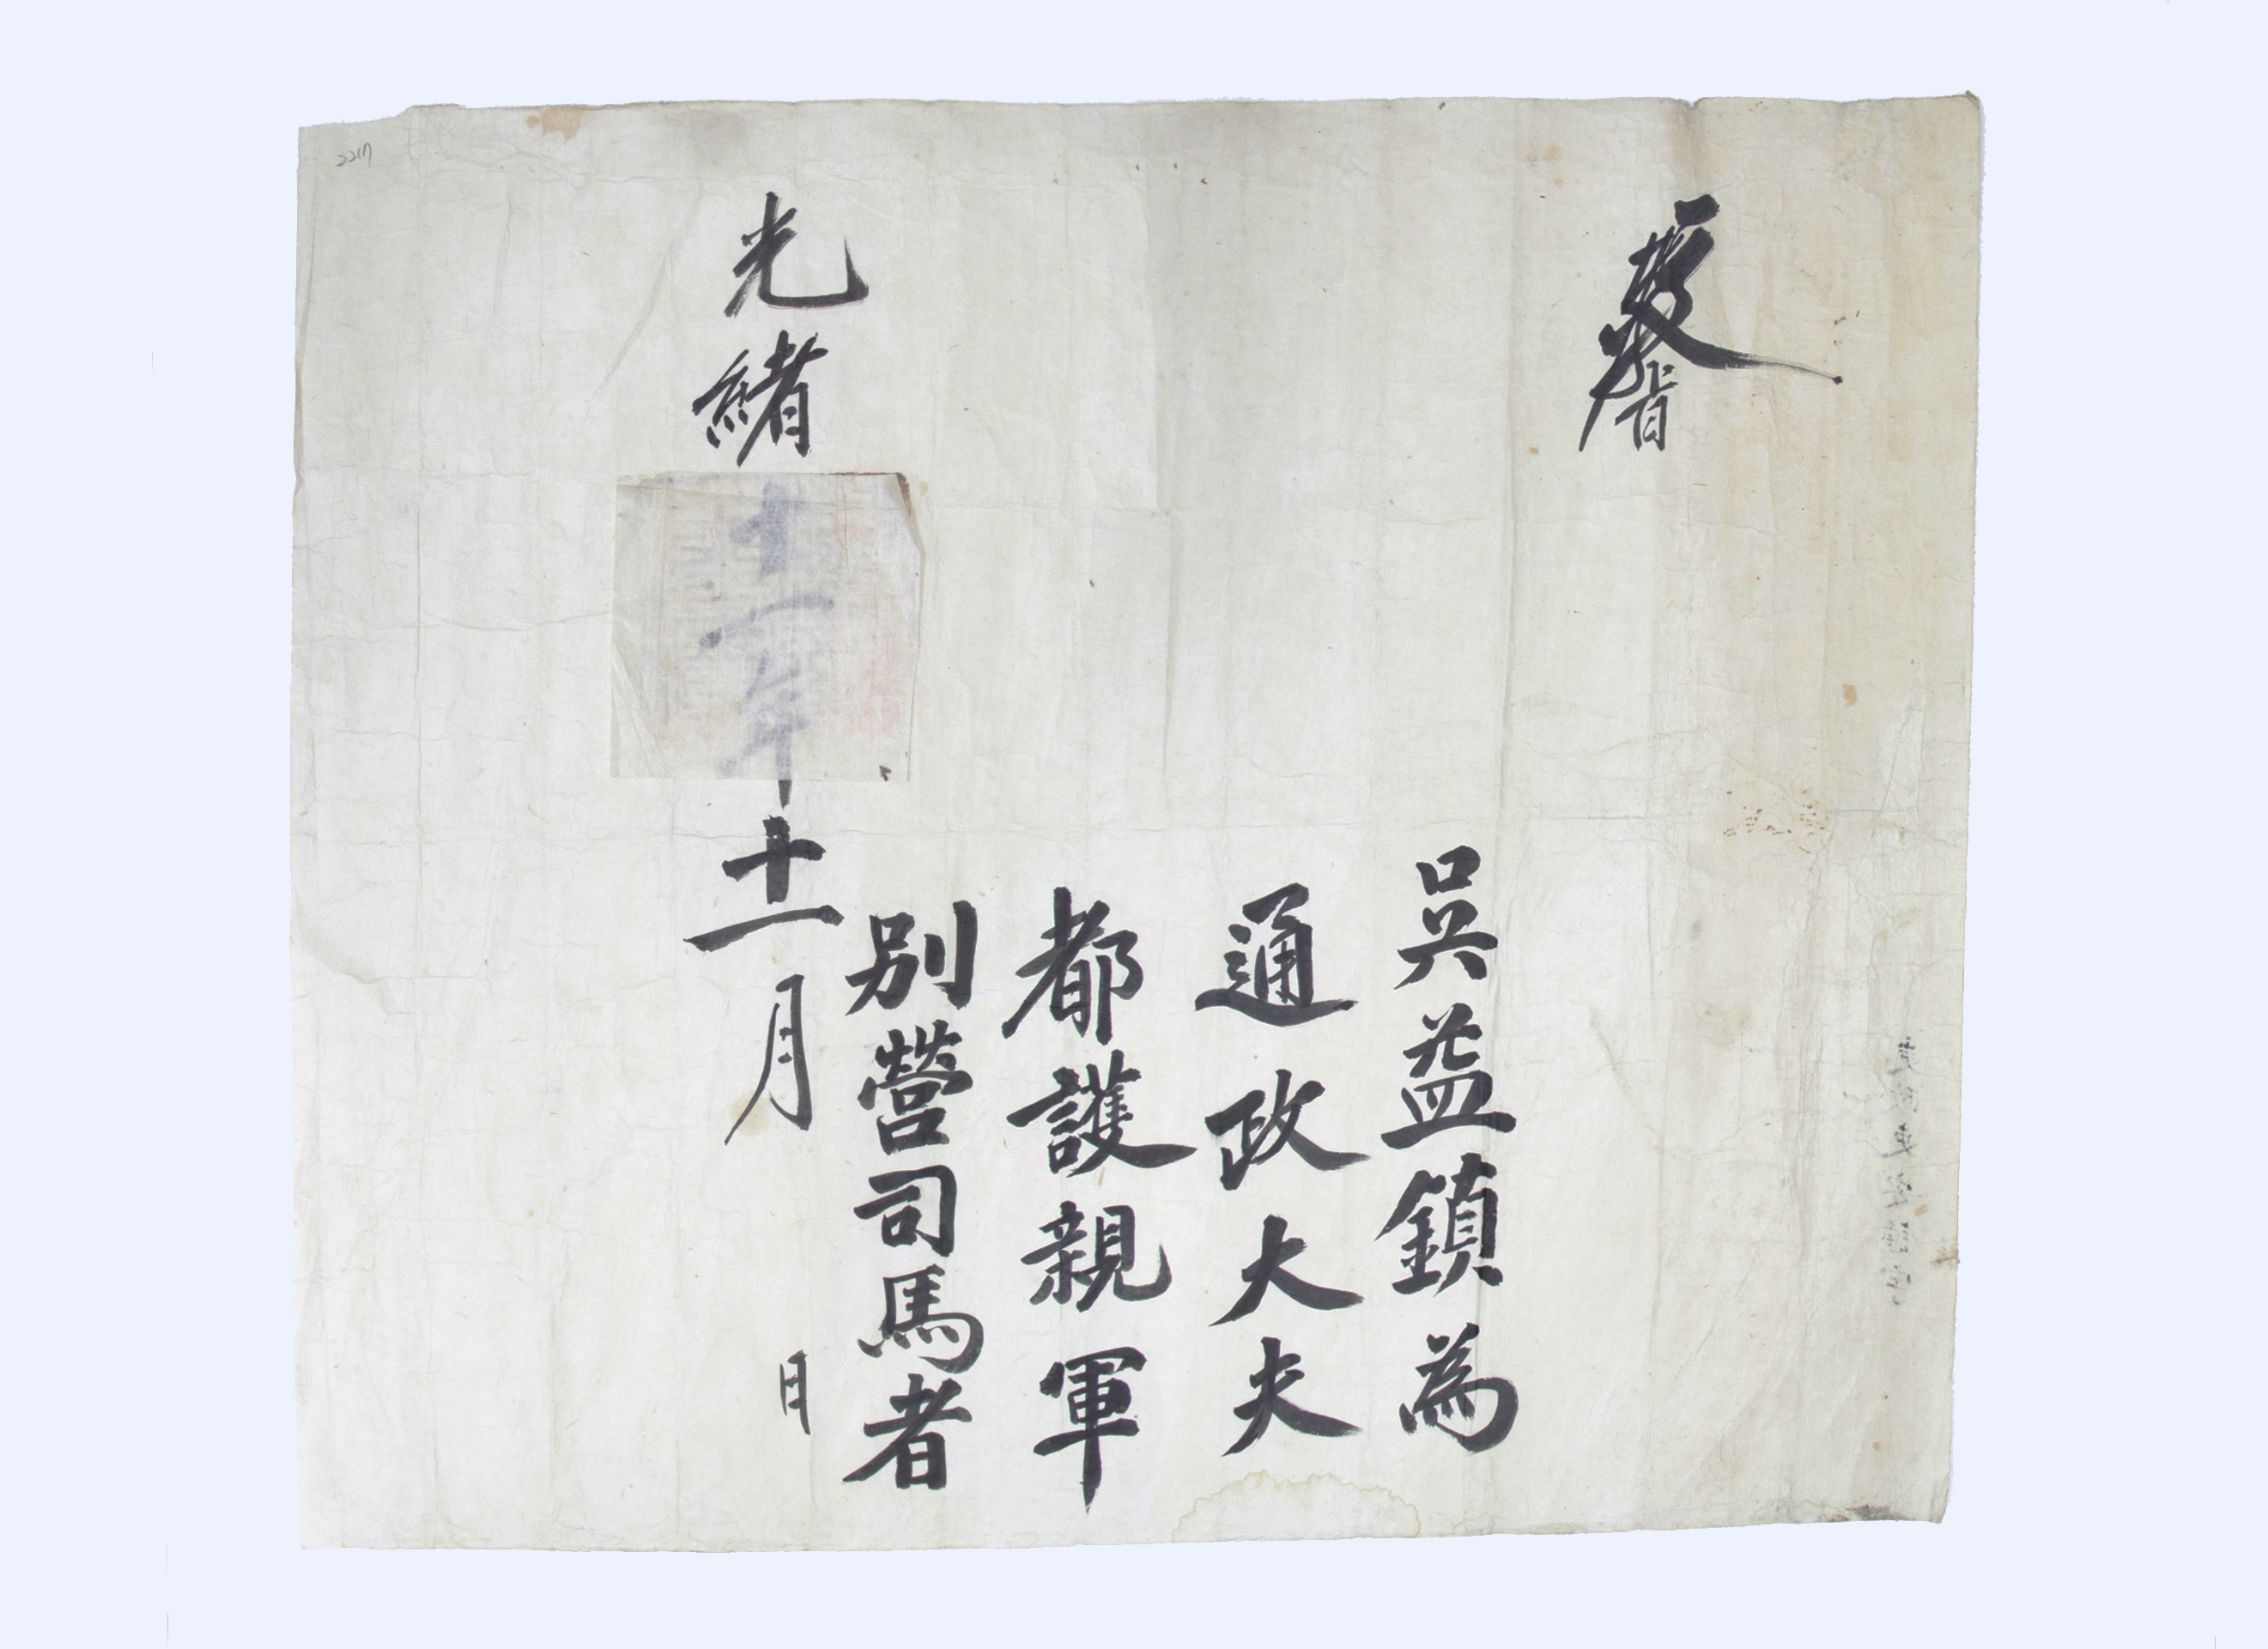 教旨
吳益鎮為
通政大夫
都護親軍
別營司馬者
光緒十一年十一月 日
2217